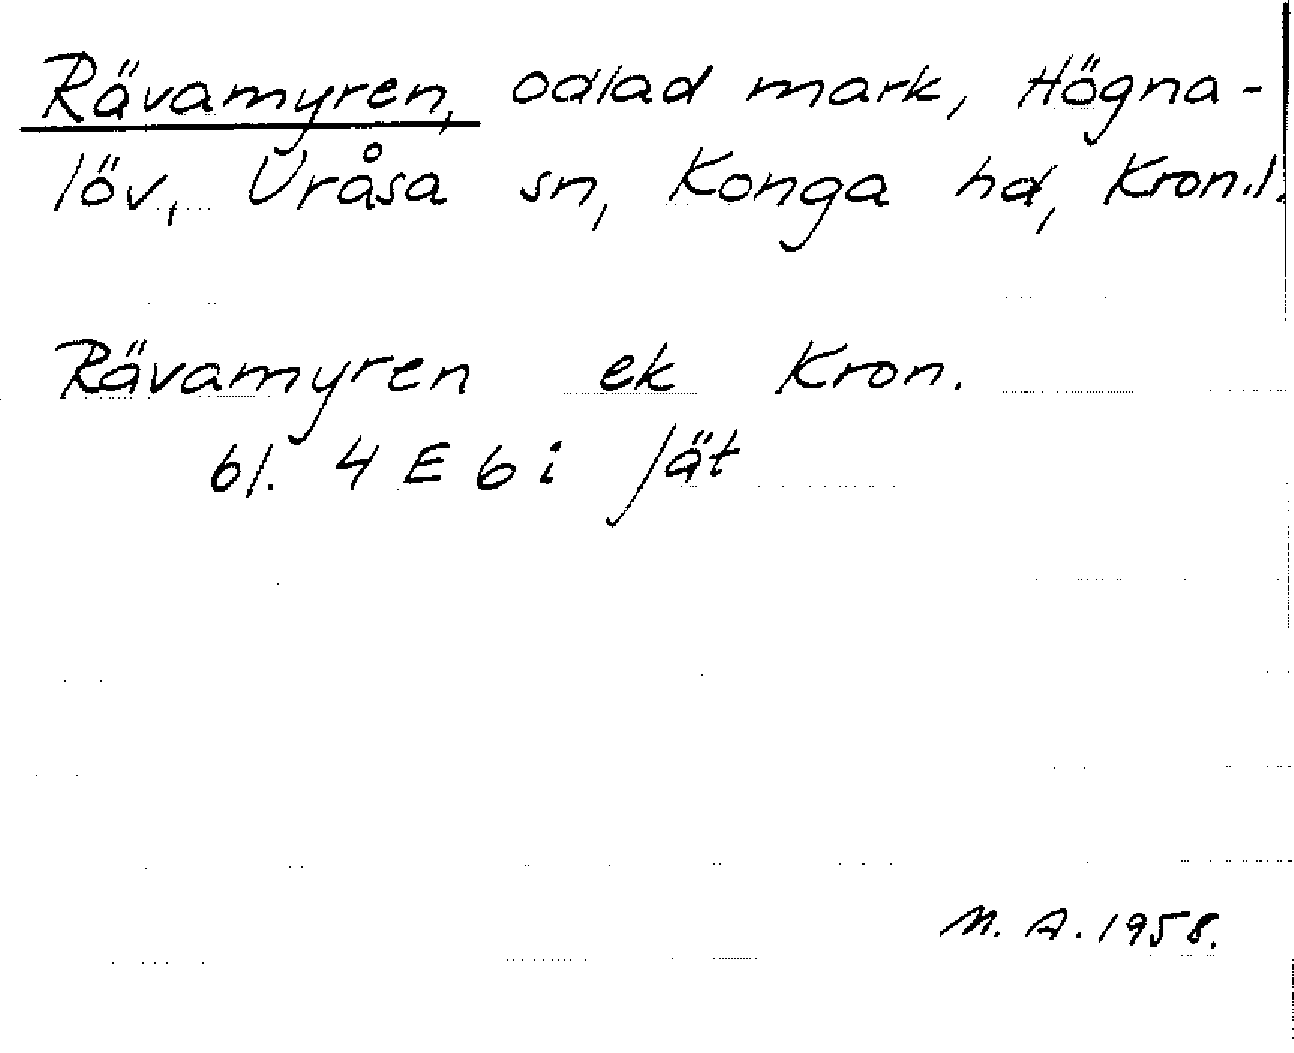 Rävamyren, odlad mark, Högna-
löv, Uråsa sn, Konga hd, Kron.l.
Rävamyren ek Kron.
bl. 4 E 6 i Jät
M. A. 1958.